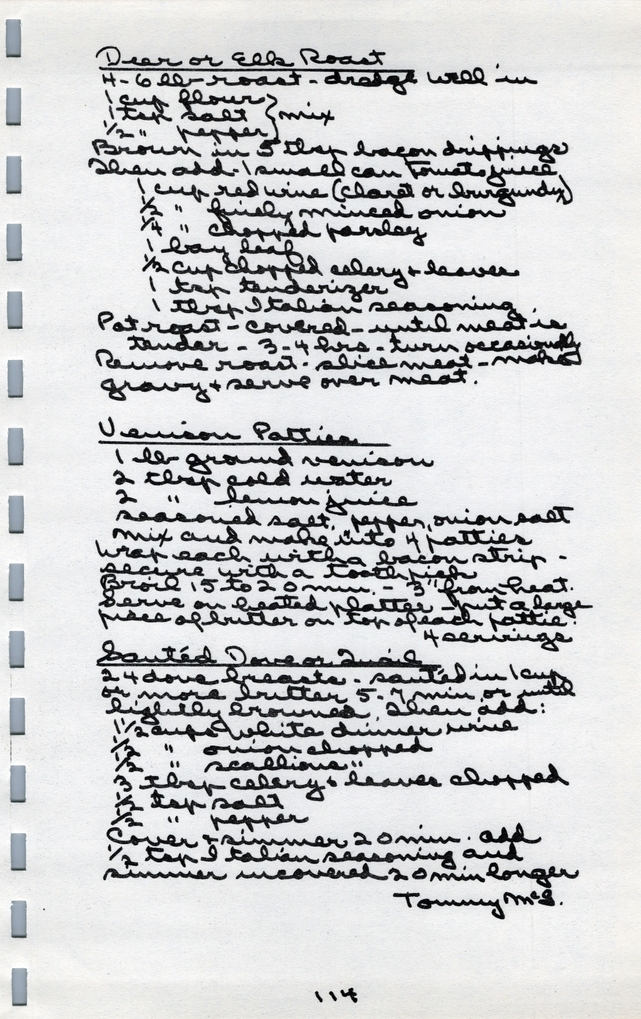 Deer or Elk Roast
4-6 lb roast - dredge well in
1 cup flour
1 tsp salt } mix
1/2 " pepper
Brown in 5 tbsp bacon drippings
Then add - 1 small can Tomato juice
1 cup red wine (claret or burgundy)
1/2 " finely minced onion
1/4 " chopped parsley
1 bay leaf
1/2 cup chopped celery + leaves
1 tsp tenderizer
1 tbsp Italian seasoning.
Pot roast - covered - until meat is
tender - 3-4 hrs - turn occasionally
Remove roast - slice meat - make
gravy + serve over meat.
Venison Patties
1 lb ground venison
2 tbsp cold water
2 " lemon juice
seasoned salt, pepper, onion salt
mix and make into 4 patties
Wrap each with a bacon strip -
secure with a toothpick
Broil 15 to 20 min. - 3" from heat.
Serve on heated platter - put a large
piece of butter on top of each pattie.
4 servings
Sautéd Dove or Quail
24 dove breasts - sautéd in 1 cup
or more butter 5-7 min or until
lightly browned. Then add:
1 1/2 cups white dinner wine
1/2 " onion chopped
1/2 " scallions "
3 tbsp celery + leaves chopped
1/2 tsp salt
1/2 " pepper
Cover + simmer 20 min. add
1/2 tsp Italian seasoning and
simmer uncovered 20 min longer
Tommy McG.
114